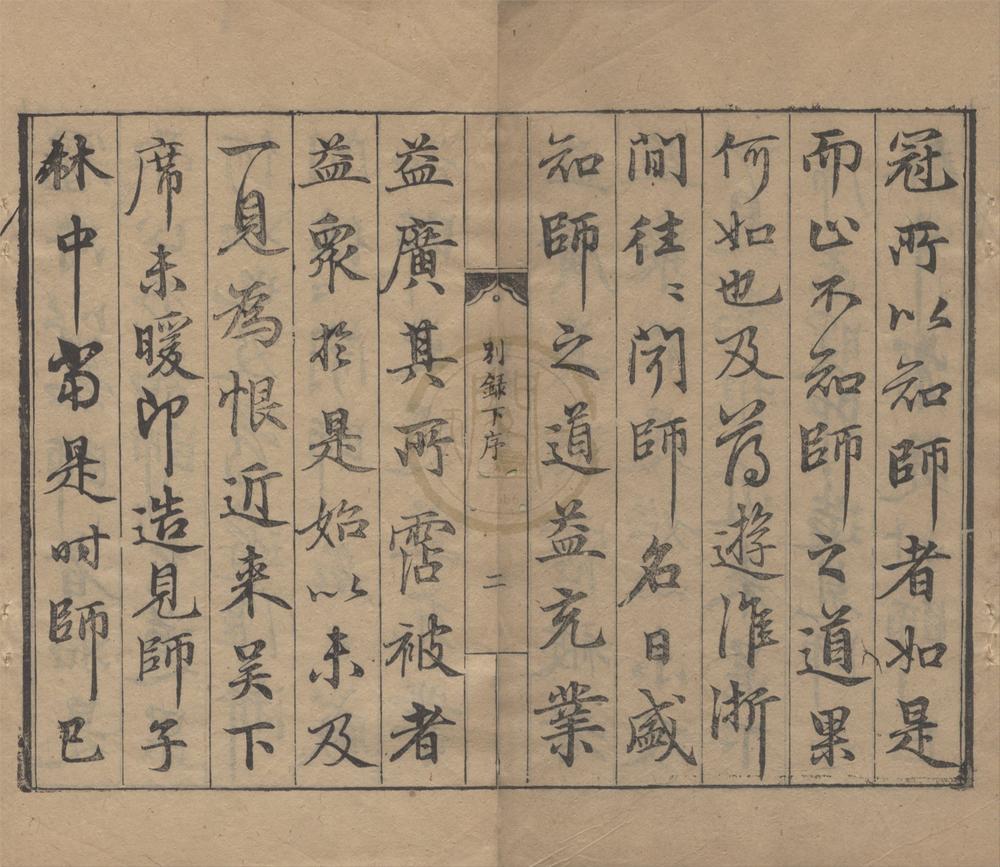 冠所以知師者如是
而止不知師之道果
何如也及薄遊淮浙
間往〻聞師名日盛
知師之道益充業
別録下序
二
益廣其所霑被者
益衆於是始以未及
一見為恨近来吴下
席未暖即造見師子
林中當是时師已